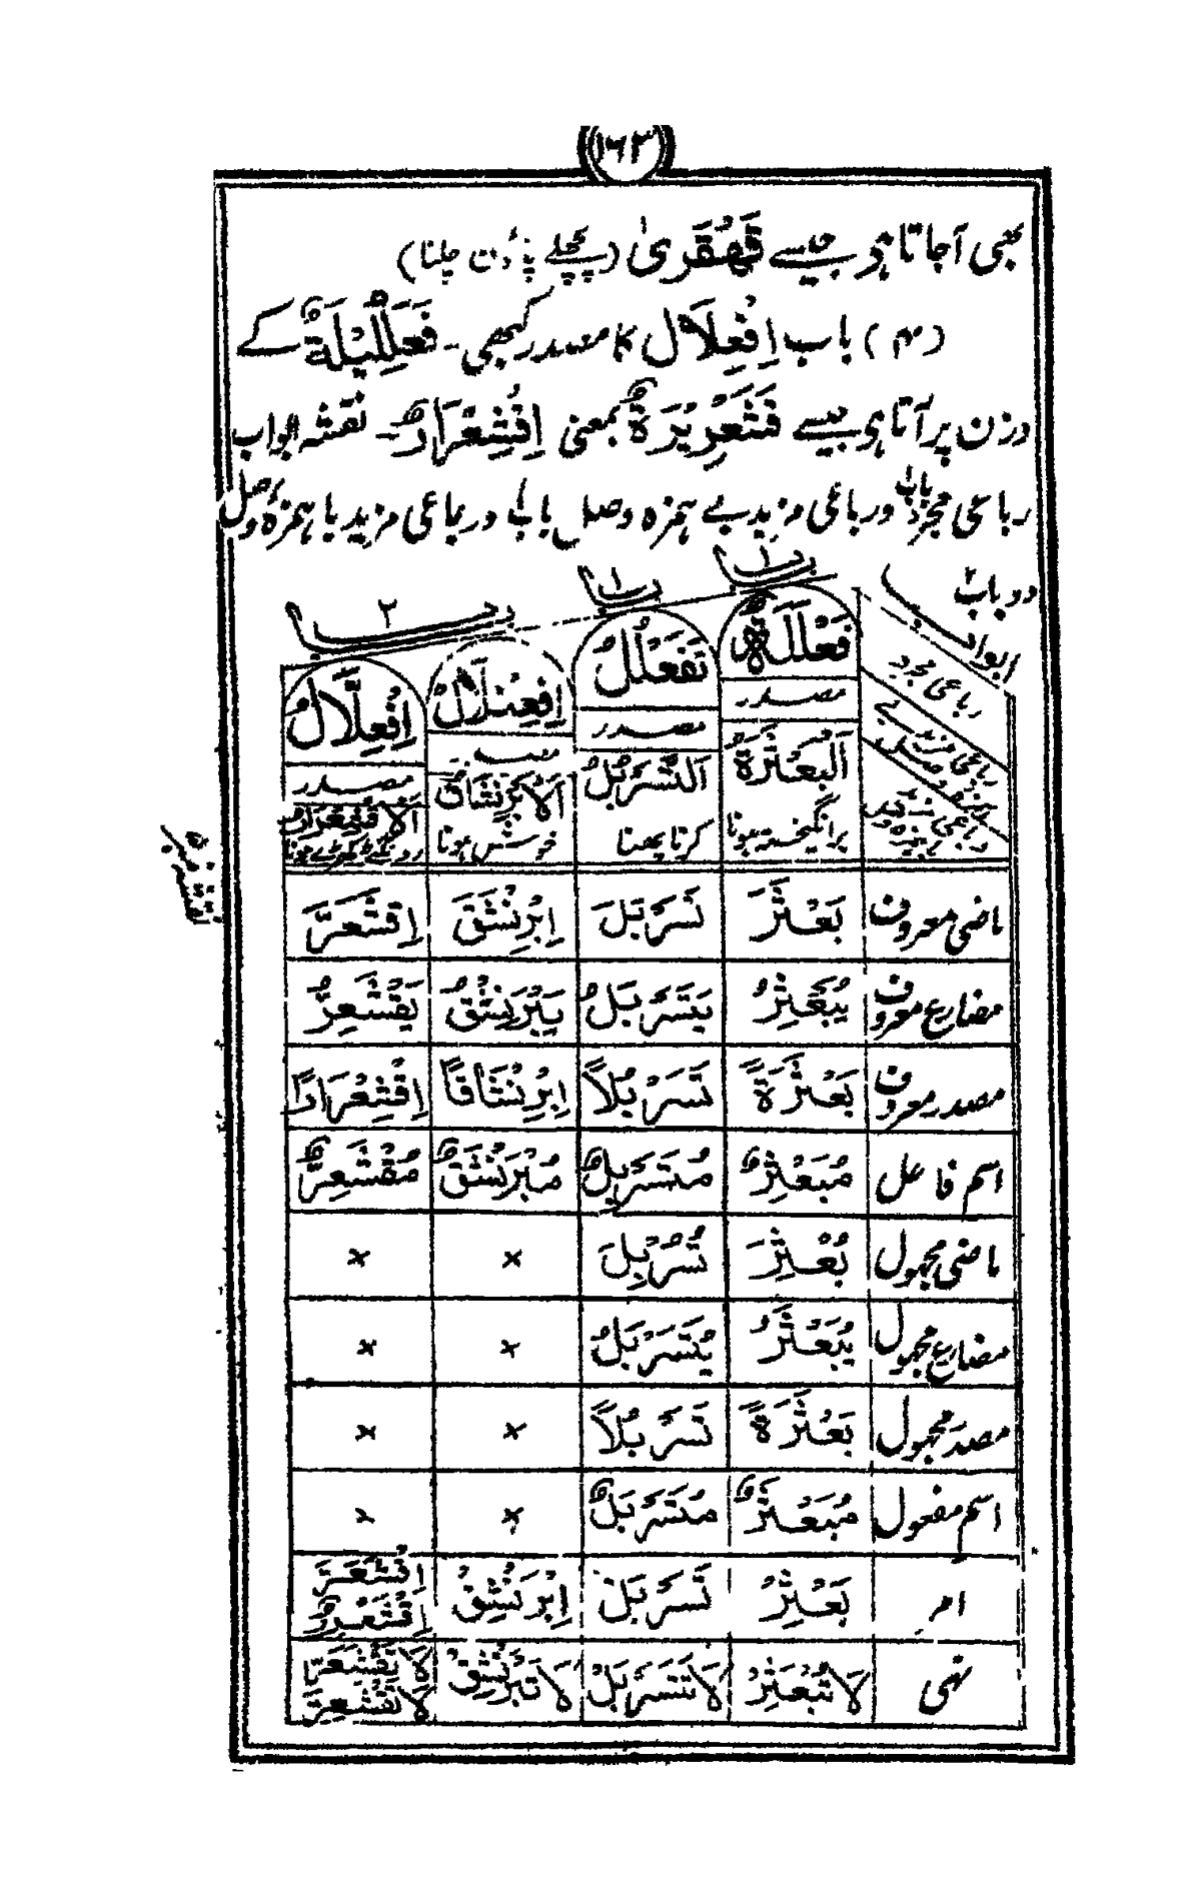 ۱۶۳
بھی آجاتا ہو جیسے قَهْقَرىٰ (پچھلے پاؤں چلنا)
(م) باب اِفْعِلَّال کا مصدر کبھی۔ فَعَلِّیْلَةٌ کے
وزن پر آتا ہو جیسے قَشْعَرِیْرَةٌ بمعنی اِقْشِعْرَارٌ۔ نقشہ ابواب
رباعی مجرد باب ورباعی مزید بے ہمزہ وصل باب ورباعی مزید با ہمزہٴ وصل
دو باب
ابواب
رباعی مجرد
۱ ۱ ۲
فَعْلَلَةٌ تَفَعْلُلٌ اِفْعِنْلَالٌ اِفْعِلَّالٌ
مصدر مصدر مصدر
اَلْبَعْثَرَةُ اَلتَّسَرْبُلُ اَلْاِبْرِنْشَاقُ اَلْاِقْشِعْرَارُ
برانگیختہ ہونا کرتا پہننا خوش ہونا رونگٹے کھڑے ہونا
ماضی معروف بَعْثَرَ تَسَرْبَلَ اِبْرَنْشَقَ اِقْشَعَرَّ
مضارع معروف یُبَعْثِرُ یَتَسَرْبَلُ یَبْرَنْشِقُ یَقْشَعِرُّ
مصدر معروف بَعْثَرَةً تَسَرْبُلًا اِبْرِنْشَاقًا اِقْشِعْرَارًا
اسم فاعل مُبَعْثِرٌ مُتَسَرْبِلٌ مُبْرَنْشِقٌ مُقْشَعِرٌّ
ماضی مجہول بُعْثِرَ تُسُرْبِلَ × ×
مضارع مجہول یُبَعْثَرُ یُتَسَرْبَلُ × ×
مصدر مجہول بَعْثَرَةً تَسَرْبُلًا × ×
اسم مفعول مُبَعْثَرٌ مُتَسَرْبَلٌ × ×
امر بَعْثِرْ تَسَرْبَلْ اِبْرَنْشِقْ اِقْشَعِرَّ اِقْشَعْرِرْ
نہی لَا تُبَعْثِرْ لَا تَتَسَرْبَلْ لَا تَبْرَنْشِقْ لَا تَقْشَعِرَّ